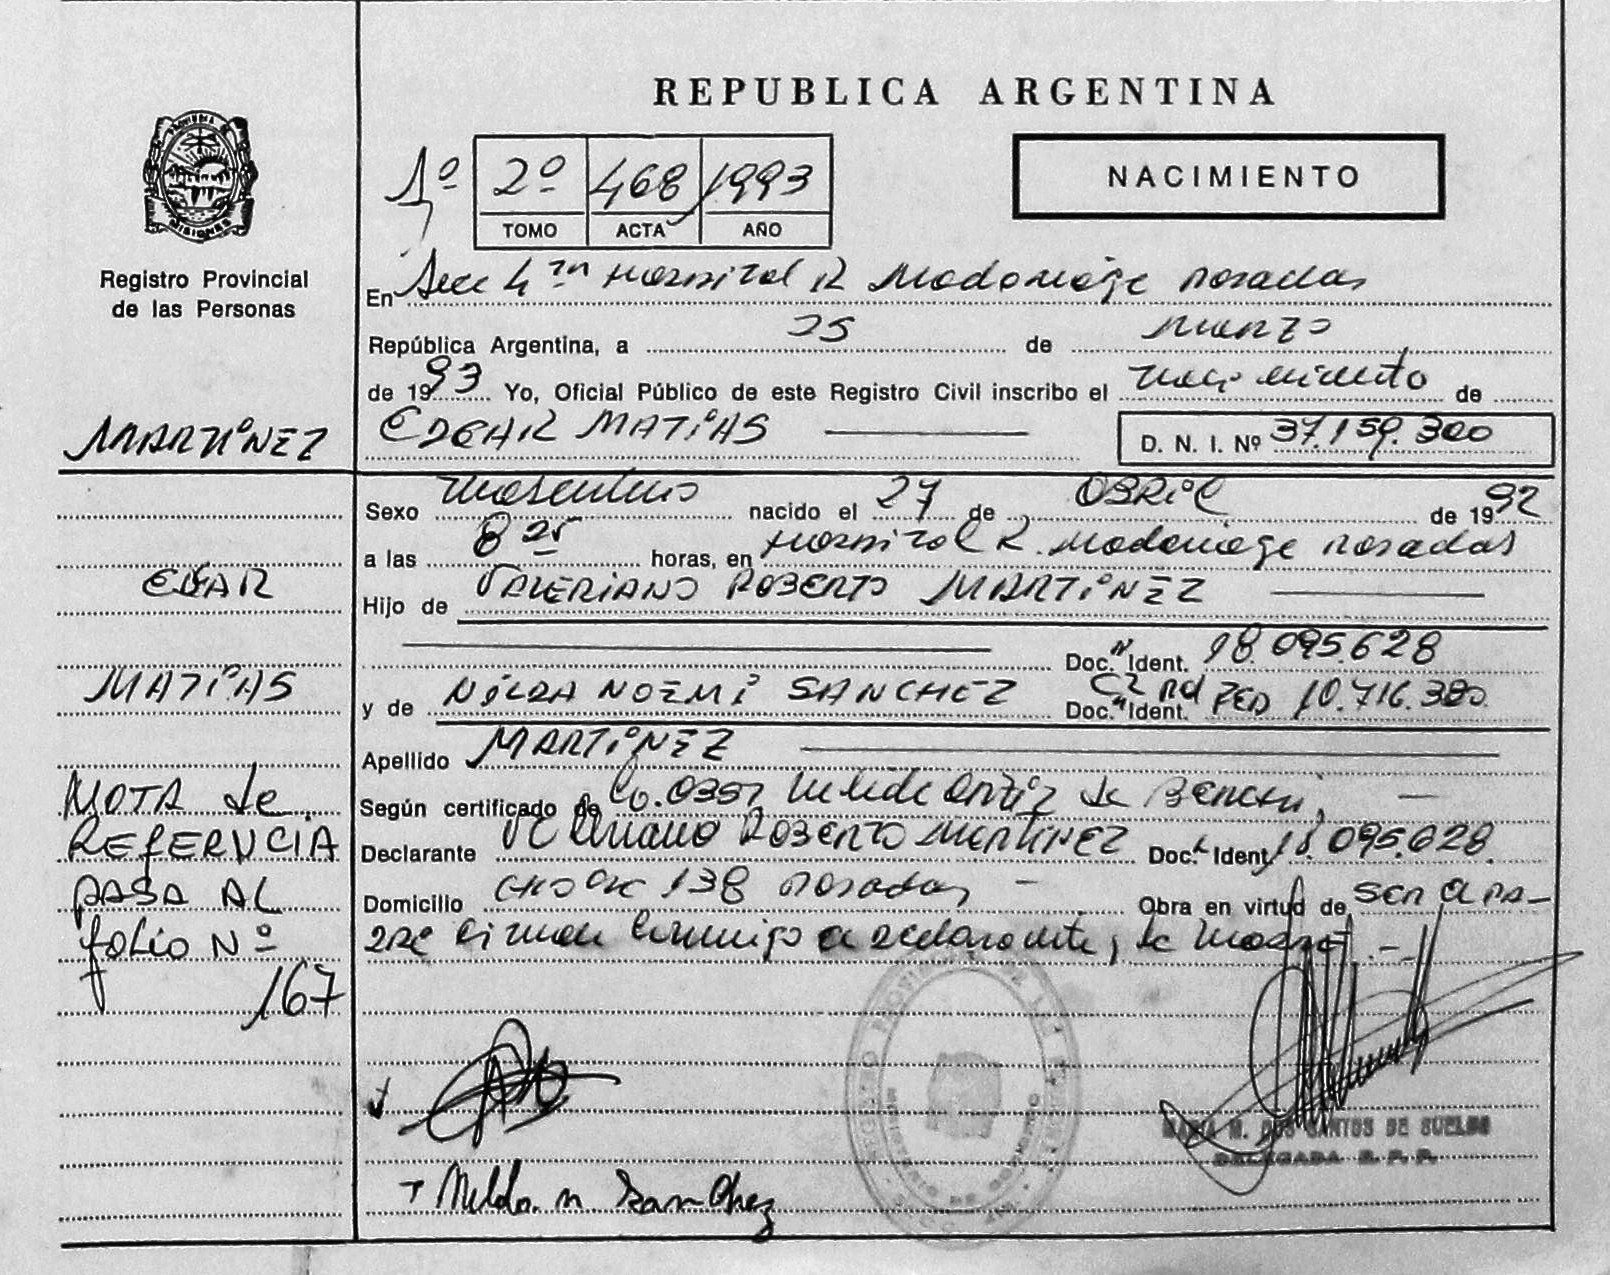 REPUBLICA ARGENTINA
1º 2º 468 1993
TOMO ACTA AÑO
NACIMIENTO
PROVINCIA DE MISIONES
Registro Provincial
de las Personas
En Secc 4ta Hospital R Madariaga Posadas
República Argentina, a 25 de Marzo
de 1993 Yo, Oficial Público de este Registro Civil inscribo el nacimiento de
MARTINEZ
EDGAR MATIAS
D. N. I. Nº 37.159.300
Sexo masculino nacido el 27 de ABRIL de 1992
a las 8 25 horas, en Hospital R. Madariaga Posadas
EDGAR
Hijo de VALERIANO ROBERTO MARTINEZ
Doc. Ident. 18.095.628
MATIAS
y de NILDA NOEMI SANCHEZ Doc. Ident. CI Pol FED 10.716.380
Apellido MARTINEZ
NOTA de
REFERENCIA
PASA AL
folio Nº
167
Según certificado de de Bianchi,
Declarante Valeriano ROBERTO MARTINEZ Doc. Ident. 18.095.628
Domicilio 138 Posadas Obra en virtud de ser el pa-
dre firman conmigo el declarante y la madre.-
Nilda. n Sanchez
MARIA M. DOS SANTOS DE SUELDO
DELEGADA R. P. P.
REGISTRO PROVINCIAL DE LAS PERSONAS
MINISTERIO DE GOBIERNO